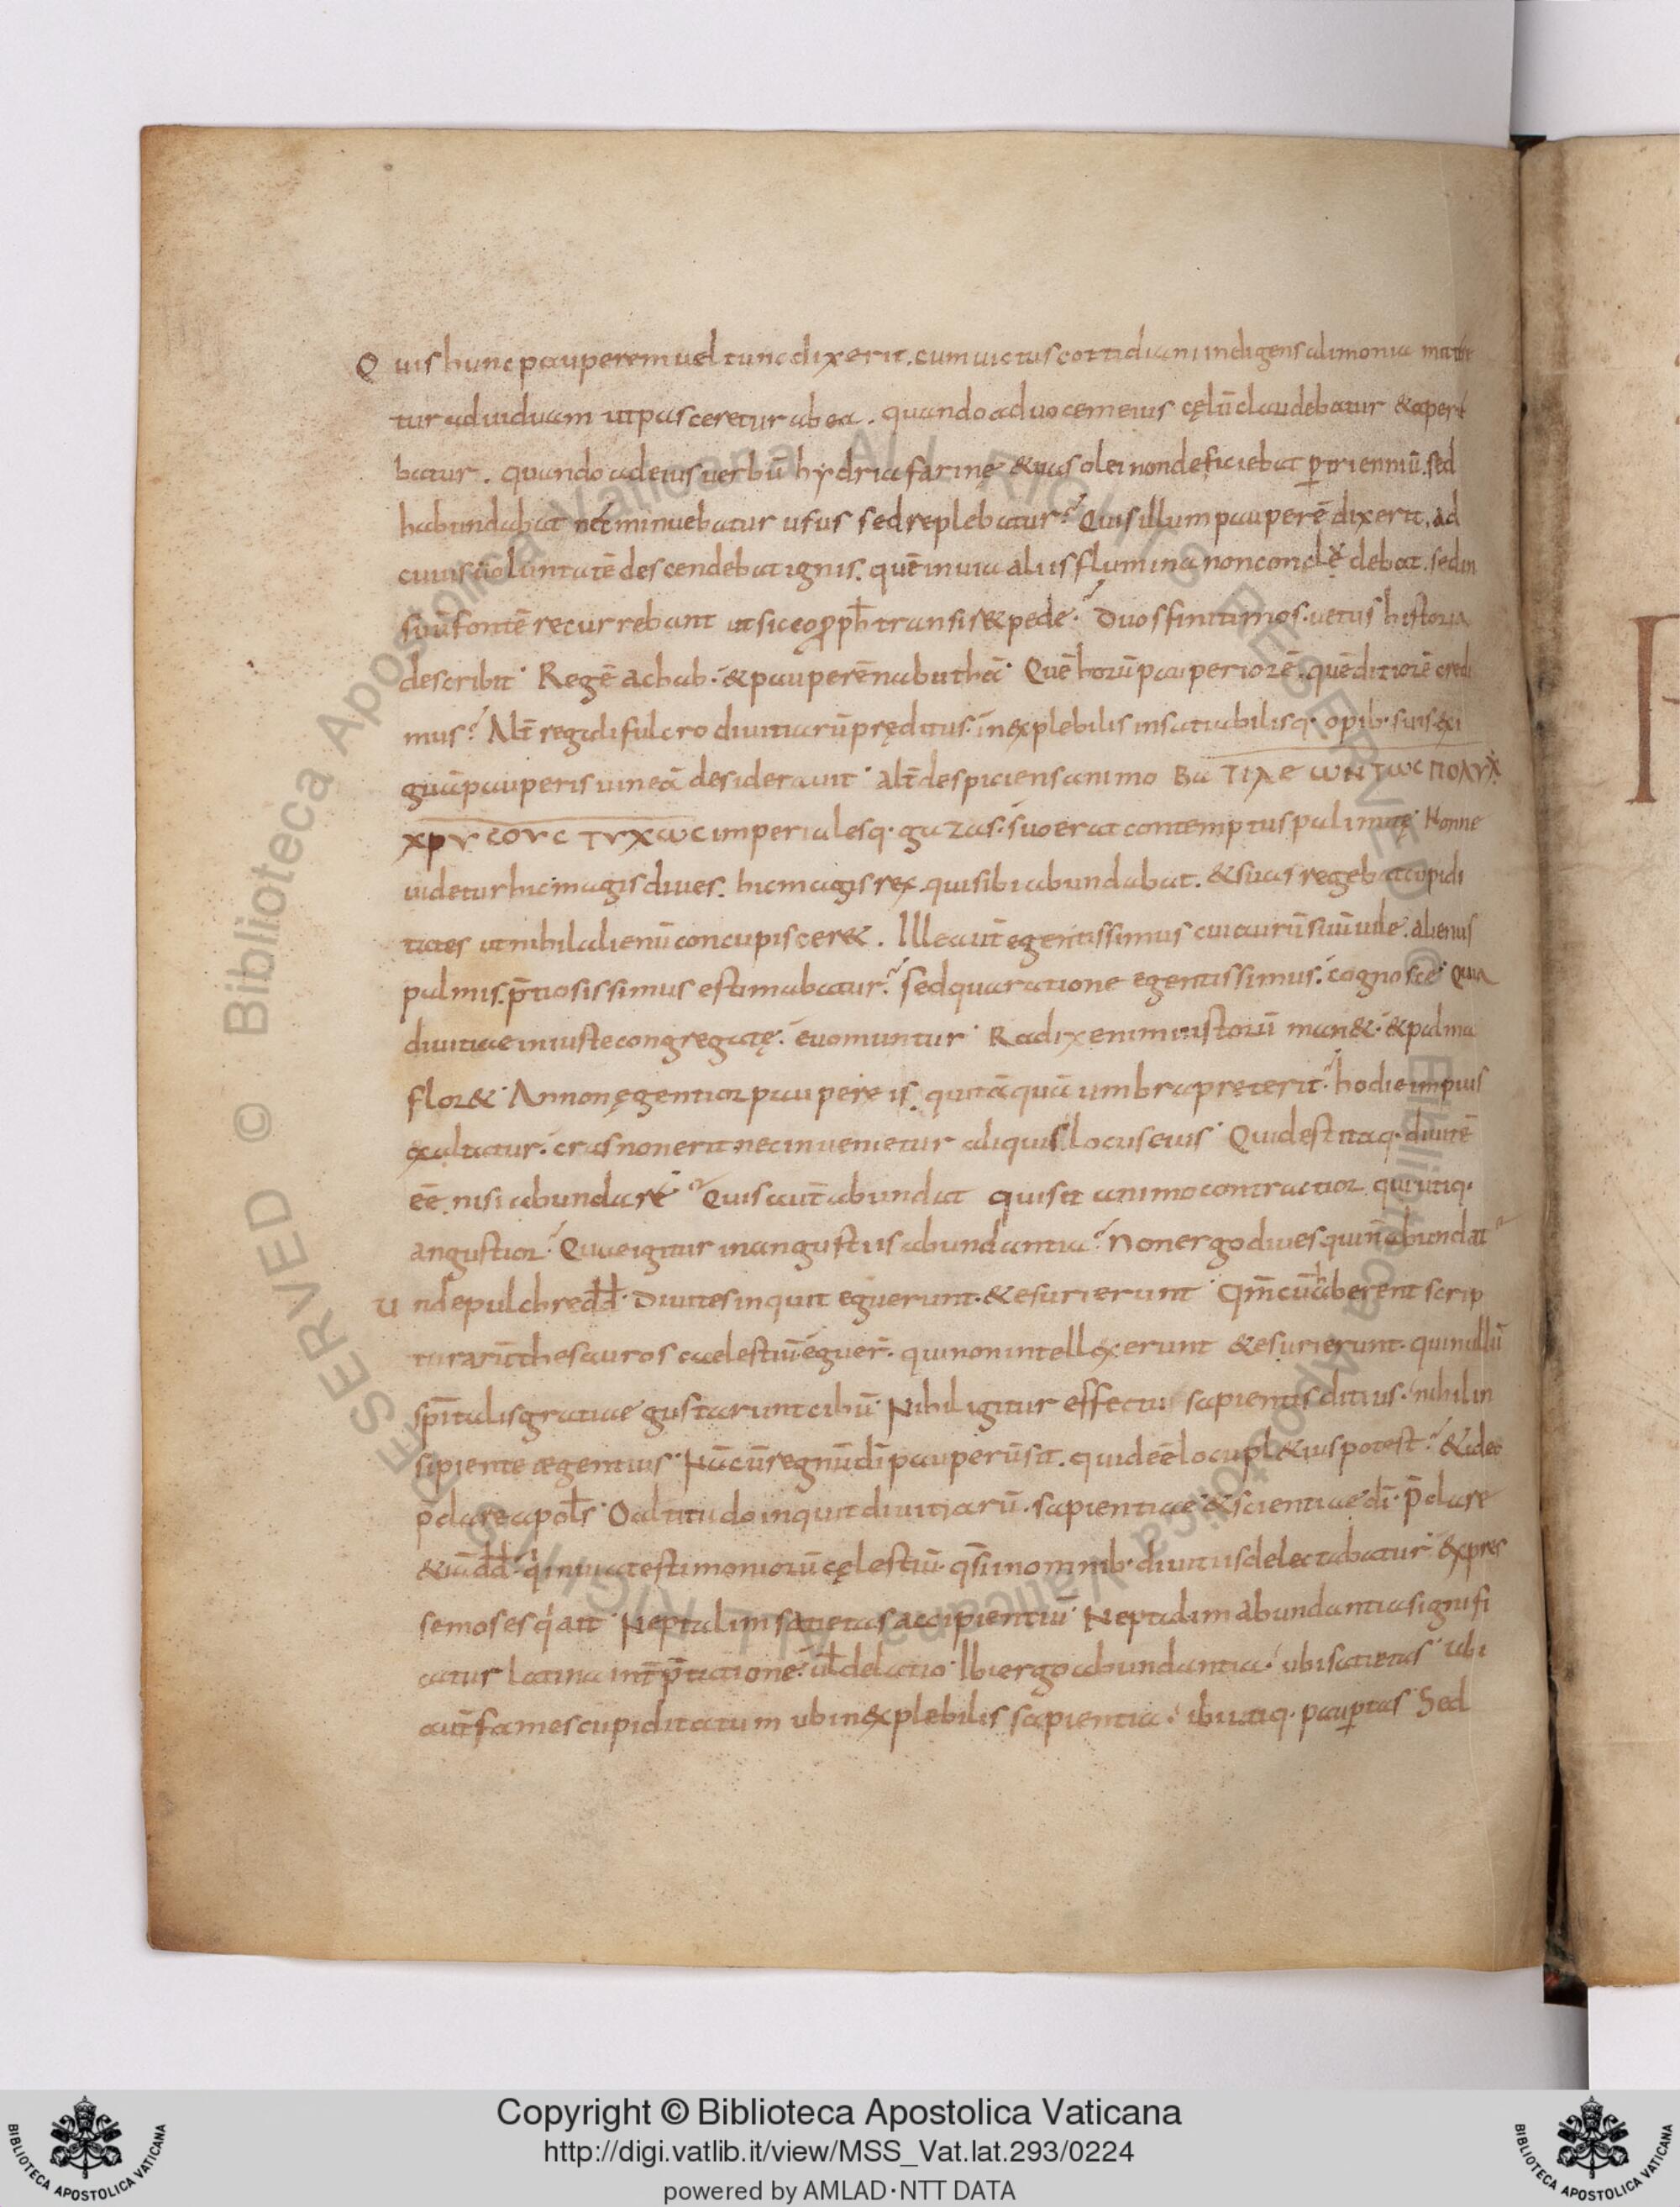 Quis hunc pauperem uel tunc dixerit. cum uictus cottidiani indigens alimonia mitte
tur ad uiduam ut pasceretur ab ea. quando ad uocem eius cęlū claudebatur & aperi
batur. quando ad eius uerbū hydria farinę & uas olei non deficiebat p trienniū. sed
habundabat nec minuebatur usus sed replebatur? Quis illum pauperē dixerit, ad
cuius uoluntatē descendebat ignis. quē inuia aliis flumina non conclędebat. sed in
suū fontē recurrebant ut sicco pph transis& pede? Duos finitimos. uetus historia
describit. Regē achab. & pauperē nabuthā. Quē horū pauperiorē. quē ditiorē credi
mus? Alt regali fulcro diuitiarū pręditus. inexplebilis insatiabilisq. opib. suis exi
guā pauperis uineā desiderauit. alt despiciens animo Ba TIΛE ωN TωC ΠOΛΥX
XPΥCOΥC TΥXωC imperialesq. gazas. suo erat contemptus palimitę. Nonne
uidetur hic magis diues. hic magis rex. qui sibi abundabat. & suas regebat cupidi
tates ut nihil alienū concupiscer&. Ille aut egentissimus cui aurū suū uile. alienus
palmis. ptiosissimus estimabatur? sed qua ratione egentissimus. cognosce. Quia
diuitiae iniuste congregatę. euomuntur. Radix enim iustorū man&. & palma
flor&. An non egentior paupere is. qui tāquā umbra pręterit? hodie impius
exaltatur. cras non erit nec inuenietur aliquis locus eius. Quid est itaq. diuitē
eē. nisi abundare? Quis aut abundat qui sit animo contractior qui utiq.
angustior? Quae igitur in angustiis abundantia? Non ergo diues qui n abundat
Unde pulchre dd. Diuites inquit eguerunt. & esurierunt. Qm cū haberent scrip
turarū thesauros caelestiū eguer. qui non intellexerunt & esurierunt. qui nullū
spitalis gratiae gustarunt cibū. Nihil igitur effectu sapientis ditius. nihil in
sipiente egentius. Nā cū regnū di pauperū sit. quid eē locupl&ius potest? & ideo
pclare apols. O altitudo inquit diuitiarū. sapientiae & scientiae di. pclare
& iā dd. qi in uia testimoniorū cęlestiū. qsi in omnib. diuitiis delectabatur. Expres
se moses qi ait. Neptalim satietas accipientiū. Neptalim abundantia signifi
catur latina int ptatione. ul delatio. Ibi ergo abundantia. ubi satietas. ubi
aut fames cupiditatum ubi inexplebilis sapientia. ibi utiq. pauptas. Sed
Copyright © Biblioteca Apostolica Vaticana
http://digi.vatlib.it/view/MSS_Vat.lat.293/0224
powered by AMLAD·NTT DATA
BIBLIOTECA APOSTOLICA VATICANA
BIBLIOTECA APOSTOLICA VATICANA